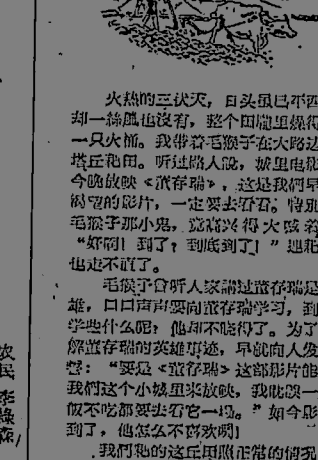 火热的三伏天，日头虽已平西
却一絲風也沒有，整个田壠里燥得
一只火桶。我带着毛猴子在大路边
塔丘犁田。听过路人說，城里电影
今晚放映《董存瑞》，这是我們早
渴望的影片，一定要去看看。特別
毛猴子那小鬼，竟高兴得大喊着
“好啊！到了？到底到了！”连犁
也走不直了。
毛猴子曾听人家講过董存瑞是
雄，口口声声要向董存瑞学习，到
学些什么呢？他却不晓得了。为了
解董存瑞的英雄事迹，早就向人发
誓：“要是《董存瑞》这部影片能
我們这个小城里来放映，我就
飯不吃都要去看它一場。”如今影
到了，他怎么不喜欢啊！
我們犁的这丘田照正常的情况
农民 李綠森